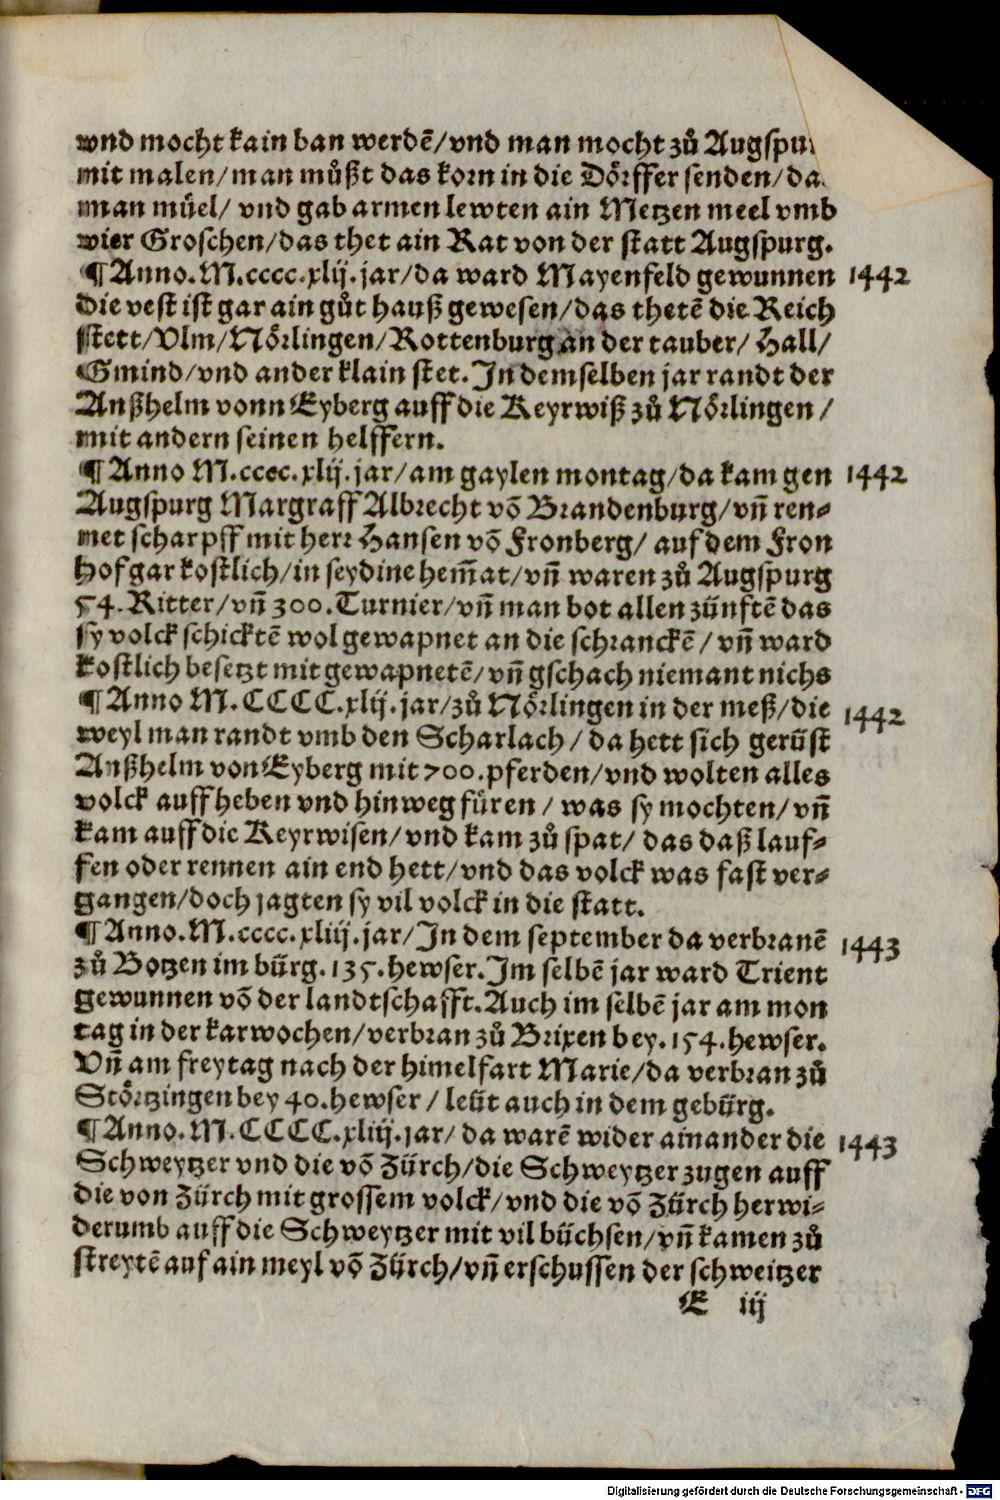 vnd mocht kain ban werdē/vnd man mocht zů
mit malen/man můßt das korn in die Dörffer senden/
man müel/ vnd gab armen lewten ain Metzen meel vmb
vier Groschen/das thet ain Rat von der statt Augspurg.
¶ Anno. M.cccc.xlij.jar/da ward Mayenfeld gewunnen 1442
die vest ist gar ain gůt hauß gewesen/das thetē die Reich
stett/Vlm/Nörlingen/Rottenburg an der tauber/ Hall/
Gmind/vnd ander klain stet. In demselben jar randt der
Anßhelm vonn Eyberg auff die Keyrwiß zů Nörlingen /
mit andern seinen helffern.
¶ Anno M.cccc.xlij.jar/am gaylen montag/da kam gen 1442
Augspurg Margraff Albrecht vō Brandenburg/vñ ren⸗
net scharpff mit herr Hansen vō Fronberg/ auf dem Fron
hof gar kostlich/in seydine hem̄at/vñ waren zů Augspurg
54. Ritter/vñ 300. Turnier/vñ man bot allen zünftē das
sy volck schicktē wol gewapnet an die schranckē/ vñ ward
kostlich besetzt mit gewapnetē/vñ gschach niemant nichs
¶ Anno M.CCCC.xlij.jar/zů Nörlingen in der meß/die 1442
weyl man randt vmb den Scharlach / da hett sich gerüst
Anßhelm von Eyberg mit 700.pferden/vnd wolten alles
volck auff heben vnd hinweg füren / was sy mochten/vñ
kam auff die Keyrwisen/vnd kam zů spat/ das daß lauf⸗
fen oder rennen ain end hett/vnd das volck was fast ver⸗
gangen/doch jagten sy vil volck in die statt.
¶ Anno.M.cccc.xliij.jar/In dem september da verbranē 1443
zů Botzen im bürg.135.hewser.Im selbē jar ward Trient
gewunnen vō der landtschafft.Auch im selbē jar am mon
tag in der karwochen/verbran zů Brixen bey.154.hewser.
Vñ am freytag nach der himelfart Marie/da verbran zů
Störtzingen bey 40.hewser / leüt auch in dem gebürg.
¶ Anno. M.CCCC.xliij.jar/ da warē wider ainander die 1443
Schweytzer vnd die vō Zürch/die Schweytzer zugen auff
die von Zürch mit grossem volck/vnd die vō Zürch herwi⸗
derumb auff die Schweytzer mit vil büchsen/vñ kamen zů
streytē auf ain meyl vō Zürch/vñ erschussen der schweitzer
E iij
Digitalisierung gefördert durch die Deutsche Forschungsgemeinschaft - DFG